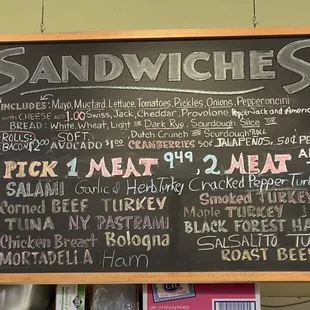 SANDWICHES
INCLUDES: Mayo, Mustard, Lettuce, Tomatoes, Pickles, Onions, Pepperoncini
WITH CHEESE ADD 1.00 Swiss, Jack, Cheddar, Provolone, PepperJack and America
BREAD: White, Wheat, Light or Dark Rye, Sourdough Slice
ROLLS: SOFT, Dutch Crunch or Sourdough ROLL
BACON $2.00 AVOCADO $1.00 CRANBERRIES 50¢ JALAPEÑOS, 50¢ PE
PICK 1 MEAT 9.49, 2 MEAT
SALAMI Garlic & Herb Turkey Cracked Pepper Turk
Corned BEEF TURKEY Smoked TURKEY
TUNA NY PASTRAMI Maple TURKEY
Chicken Breast Bologna BLACK FOREST HA
MORTADELLA Ham SALSALITO TU
ROAST BEEF